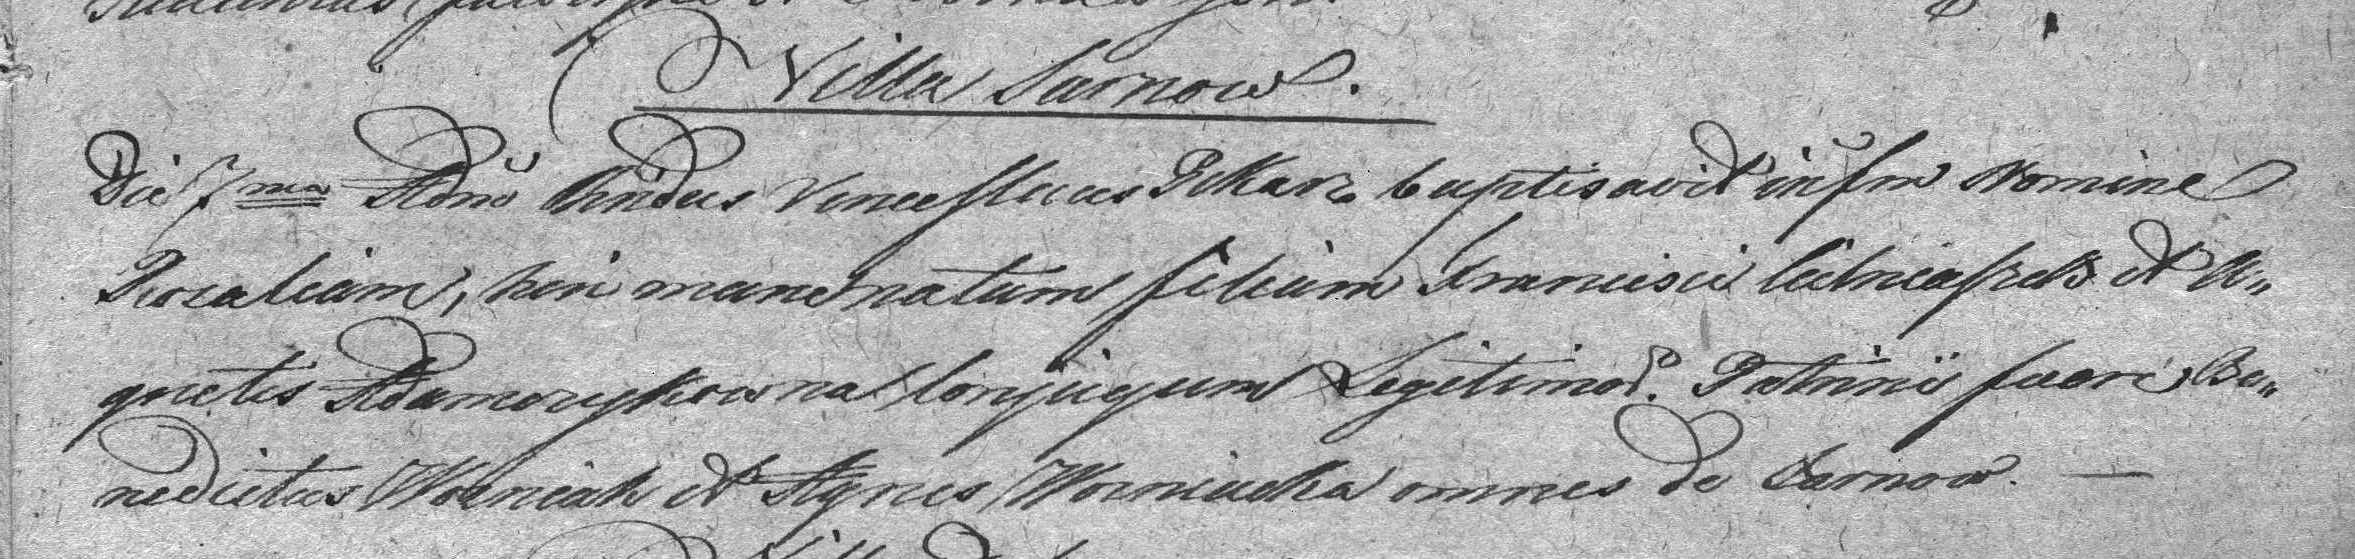 Villa Sarnow.
Die 7ma Admõ Rndus Venceslaus Pikarz baptisavit infm Nomine
heri mane natum filium Francisci et A„
gnetis Adamczykowna Conjugum Legitimor. Patrini fuere Be„
nedictus Woźniak et Agnes Wozniacka omnes de Sarnow. —